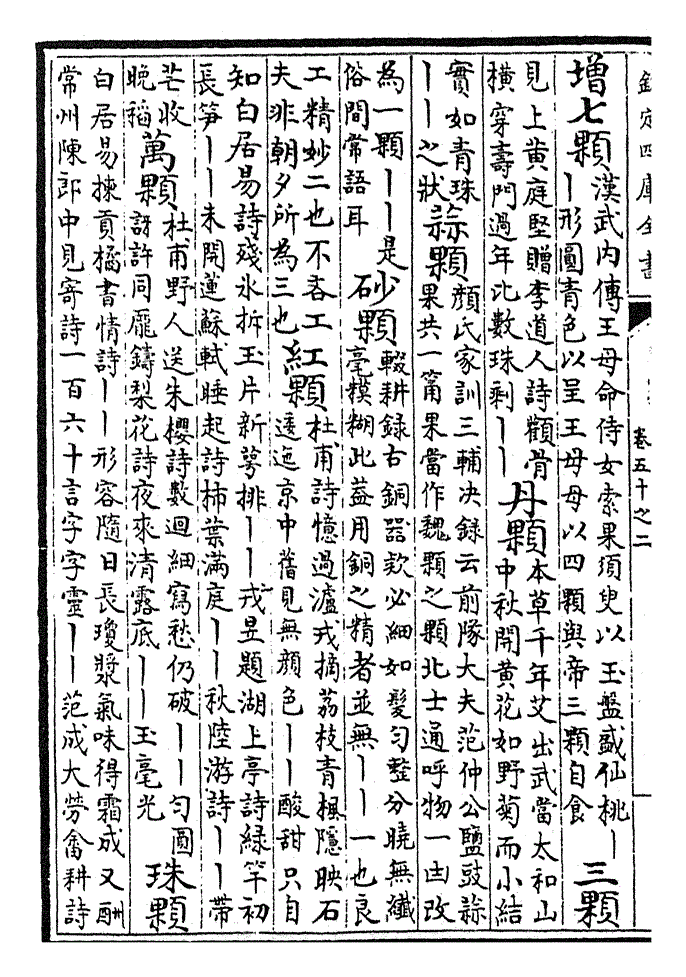 欽定四庫全書
卷五十之二
増七顆 漢武内傳王母命侍女索果須臾以玉盤盛仙桃丨
丨形圓青色以呈王母母以四顆與帝三顆自食 三顆
見上黄庭堅贈李道人詩顴骨
横穿壽門過年比數珠剩丨丨 丹顆 本草千年艾出武當太和山
中秋開黄花如野菊而小結
實如青珠
丨丨之狀 蒜顆 顔氏家訓三輔决録云前隊大夫范仲公鹽豉蒜
果共一筩果當作魏顆之顆北士通呼物一凷改
為一顆丨丨是
俗間常語耳 砂顆 輟耕録古銅器款必細如髪勻整分曉無纖
毫糢糊此葢用銅之精者並無丨丨一也良
工精妙二也不吝工
夫非朝夕所為三也 紅顆 杜甫詩憶過瀘戎摘荔枝青楓隱映石
逶迤京中舊見無顔色丨丨酸甜只自
知白居易詩殘氷拆玉片新萼排丨丨戎昱題湖上亭詩緑竿初
長笋丨丨未開蓮蘇軾睡起詩柿葉滿庭丨丨秋陸游詩丨丨帶
芒收
晚稻 萬顆 杜甫野人送朱櫻詩數迴細寫愁仍破丨丨勻圓
訝許同龎鑄梨花詩夜來清露底丨丨玉毫光 珠顆
白居易揀貢橘書情詩丨丨形容隨日長瓊漿氣味得霜成又酬
常州陳郎中見寄詩一百六十言字字靈丨丨范成大勞畬耕詩